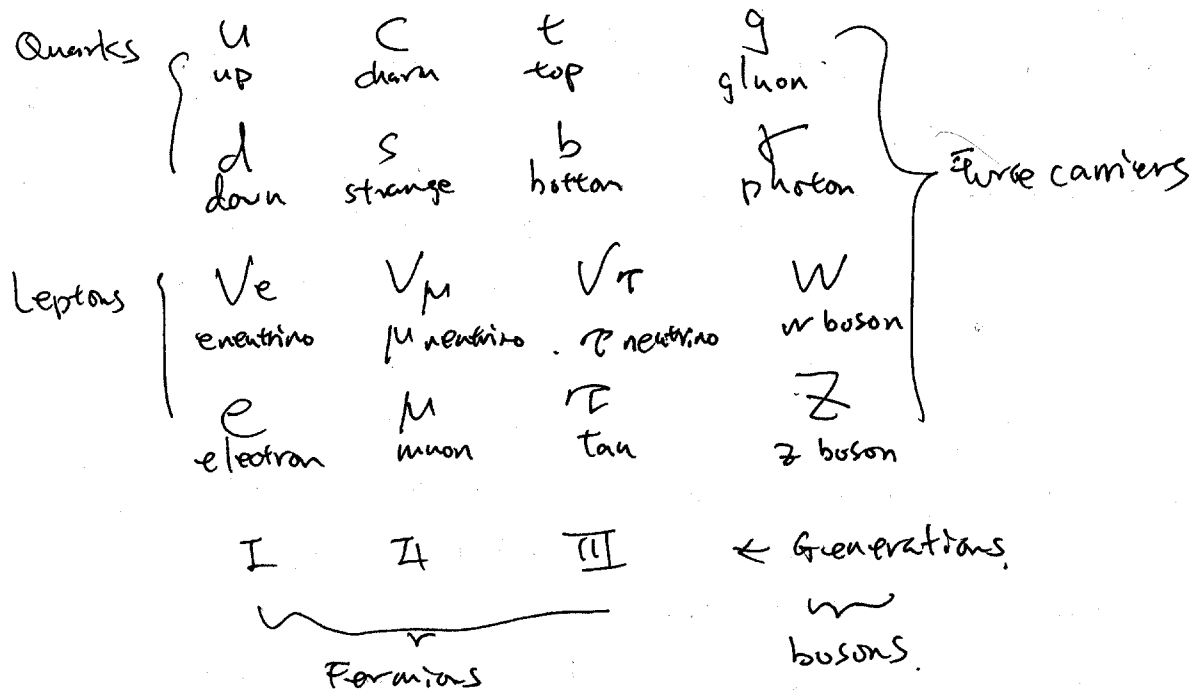 Quarks u c t g
up charm top gluon
d s b γ
down strange bottom photon
Force carriers
Leptons νe νμ ντ W
e neutrino μ neutrino τ neutrino w boson
e μ τ Z
electron muon tau z boson
I II III ← Generations.
Fermions bosons.